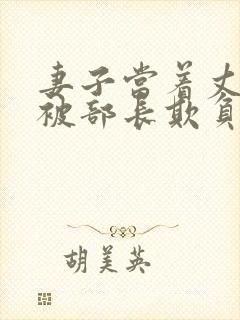 妻子当着丈
被部长欺負
胡美英